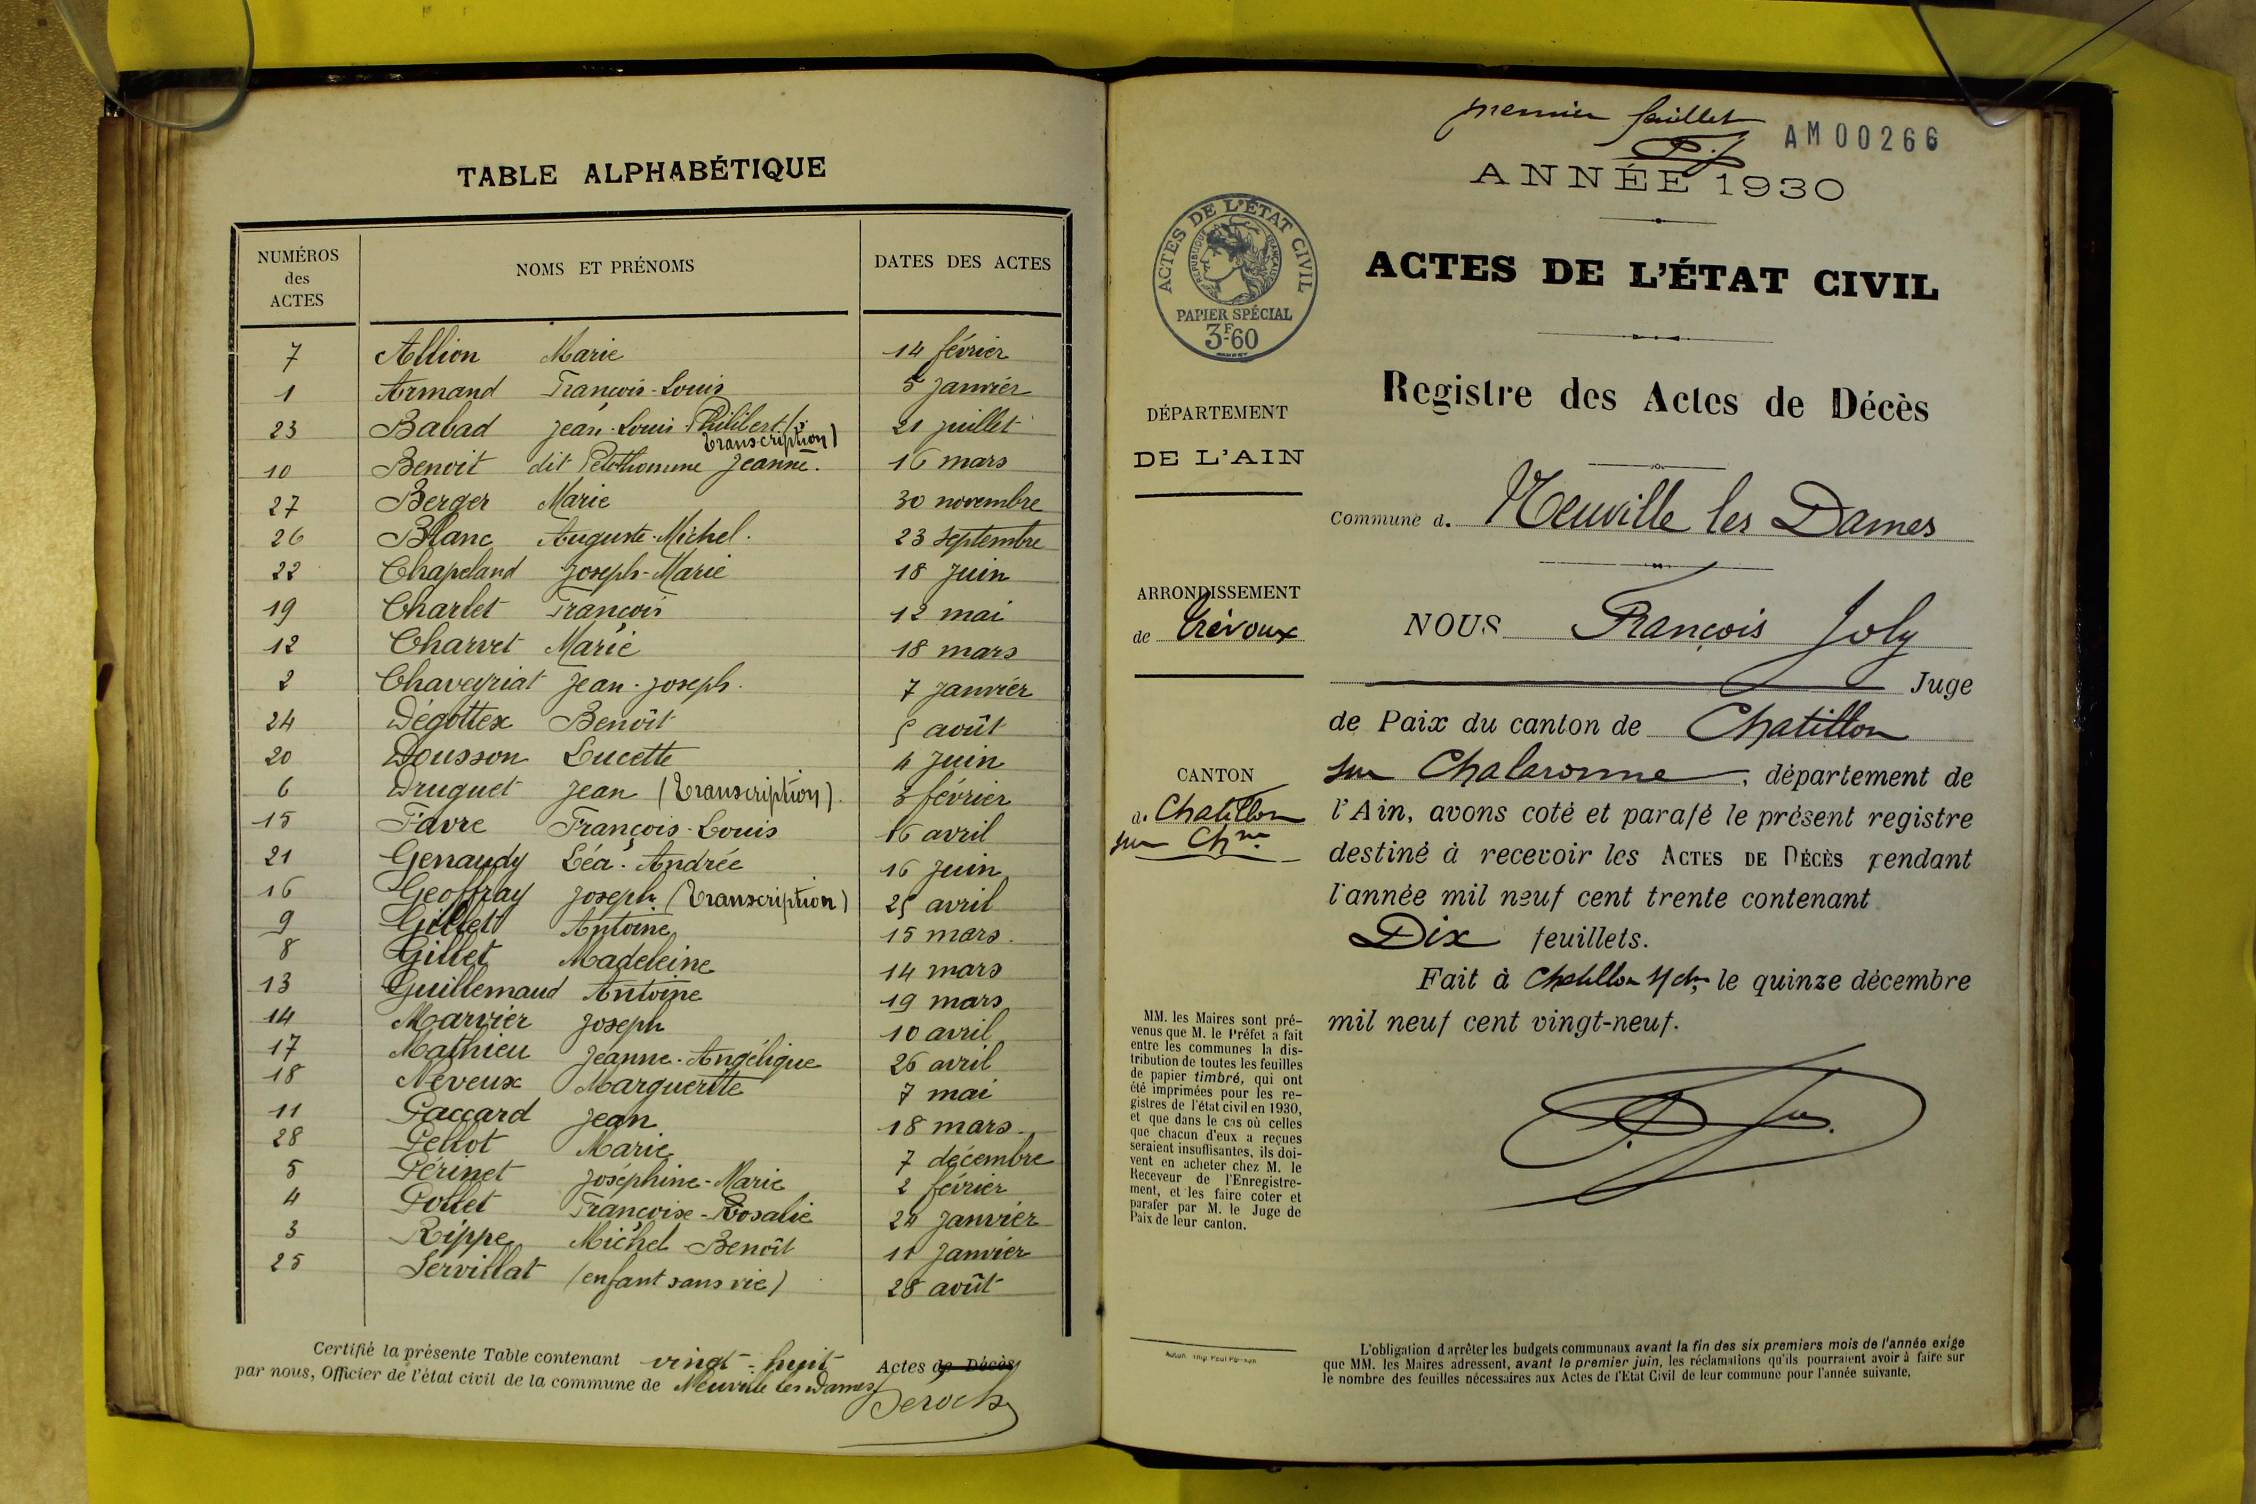 TABLE ALPHABÉTIQUE
NUMÉROS des ACTES NOMS ET PRÉNOMS DATES DES ACTES
7 Allion Marie 14 février
1 Armand François-Louis 5 janvier
23 Babad Jean-Louis Philibert (transcription) 21 juillet
10 Benoit dit Petithomme Jeanne. 16 mars
27 Berger Marie 30 novembre
26 Blanc Auguste-Michel. 23 septembre
22 Chapeland Joseph-Marie 18 juin
19 Charlet François 12 mai
12 Charvet Marie 18 mars
2 Chaveyriat Jean-Joseph. 7 janvier
24 Dégottex Benoît 5 août
20 Dousson Lucette 4 juin
6 Druguet Jean (transcription). 3 février
15 Favre François-Louis 16 avril
21 Genaudy Léa-Andrée 16 juin
16 Geoffray Joseph (transcription) 25 avril
9 Gillet Antoine 15 mars.
8 Gillet Madeleine 14 mars
13 Guillemaud Antoine 19 mars
14 Marvier Joseph 10 avril
17 Mathieu Jeanne-Angélique 26 avril
18 Neveux Marguerite 7 mai
11 Paccard Jean 18 mars
28 Pellot Marie 7 décembre
5 Périnet Joséphine-Marie 2 février
4 Pollet Françoise-Rosalie 24 janvier
3 Rippe Michel-Benoît 11 janvier
25 Servillat (enfant sans vie) 28 août
Certifié la présente Table contenant vingt-huit Actes de Décès
par nous, Officier de l'état civil de la commune de Neuville les Dames
premier feuillet
AM00266
ANNÉE 1930
ACTES DE L'ÉTAT CIVIL
RÉPUBLIQUE FRANÇAISE
PAPIER SPÉCIAL
3F.60
ACTES DE L'ÉTAT CIVIL
Registre des Actes de Décès
DÉPARTEMENT
DE L'AIN
Commune d. Neuville les Dames
ARRONDISSEMENT
de Trévoux
NOUS François Joly
Juge
de Paix du canton de Chatillon
sur Chalaronne, département de
l'Ain, avons coté et parafé le présent registre
destiné à recevoir les ACTES DE DÉCÈS pendant
l'année mil neuf cent trente contenant
Dix feuillets.
Fait à Chatillon s/ch, le quinze décembre
mil neuf cent vingt-neuf.
CANTON
d. Chatillon
sur Chne
MM. les Maires sont pré-
venus que M. le Préfet a fait
entre les communes la dis-
tribution de toutes les feuilles
de papier timbré, qui ont
été imprimées pour les re-
gistres de l'état civil en 1930,
et que dans le cas où celles
que chacun d'eux a reçues
seraient insuffisantes, ils doi-
vent en acheter chez M. le
Receveur de l'Enregistre-
ment, et les faire coter et
parafer par M. le Juge de
Paix de leur canton.
L'obligation d'arrêter les budgets communaux avant la fin des six premiers mois de l'année exige
que MM. les Maires adressent, avant le premier juin, les réclamations qu'ils pourraient avoir à faire sur
le nombre des feuilles nécessaires aux Actes de l'Etat Civil de leur commune pour l'année suivante.